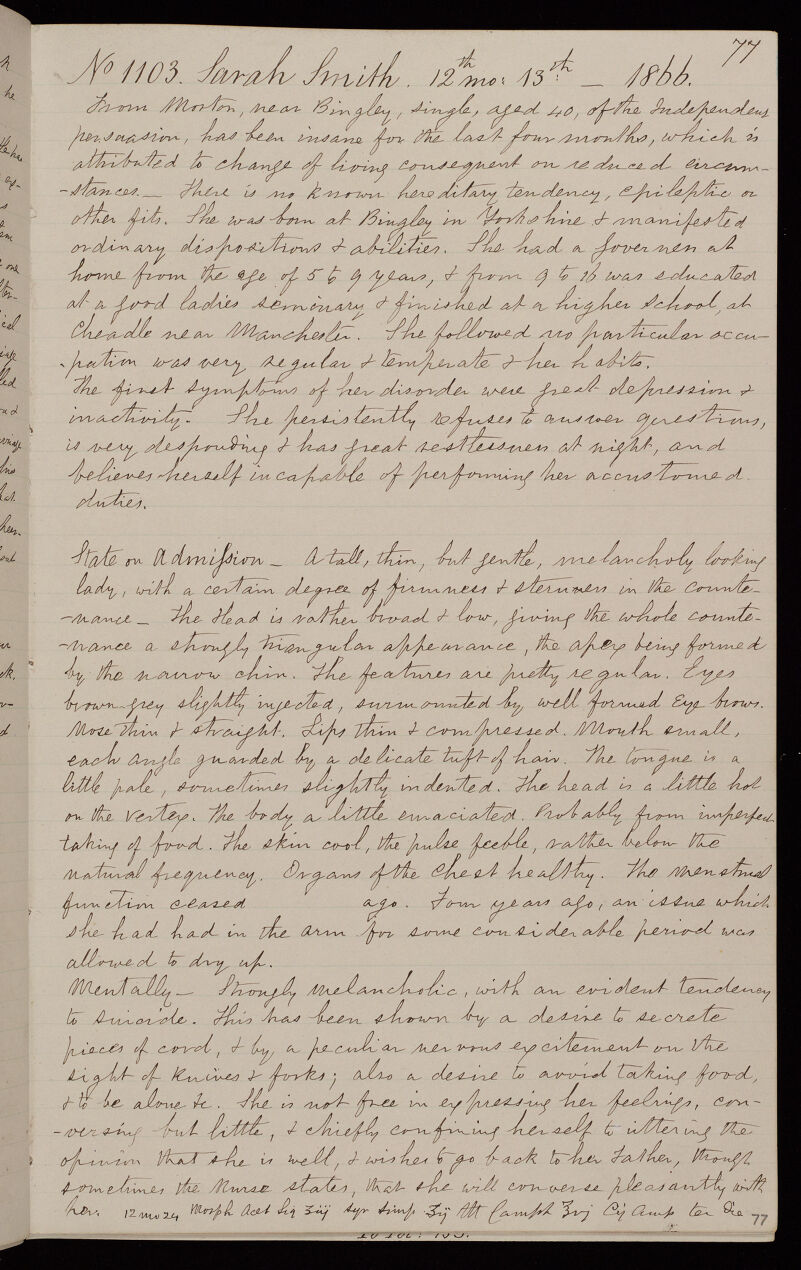 77
No 1103. Sarah Smith. 12th mo: 13th. — 1866.
From Morton, near Bingley, single, aged 40, of the Independent
persuasion, has been insane for the last four months, which is
attributed to change of living consequent on reduced circum-
-stances. — There is no known hereditary tendency, epileptic or
other fits. She was born at Bingley in Yorkshire & manifested
ordinary dispositions & abilities. She had a Governess at
home from the age of 5 to 9 years, & from 9 to 16 was educated
at a good ladies seminary & finished at a higher school, at
Cheadle near Manchester. She followed no particular occu-
-pation was very regular & temperate & her habits.
The first symptoms of her disorder were great depression &
inactivity. She persistently refuses to answer questions,
is very desponding & has great restlessness at night, and
believes herself incapable of performing her accustomed
duties.
State on Admission — A tall, thin, but gentle, melancholy looking
lady, with a certain degree of firmness & sternness in the counte-
-nance — The Head is rather broad & low, giving the whole counte-
-nance a strongly triangular appearance, the apex being formed
by the narrow chin. The features are pretty regular. Eyes
brown-grey slightly injected, surmounted by well formed Eye brows.
Nose thin & straight. Lips thin & compressed. Mouth small,
each angle guarded by a delicate tuft of hair. The tongue is a
little pale, sometimes slightly indented. The head is a little hot
on the vertex. The body a little emaciated. Probably from imperfect
taking of food. The skin cool, the pulse feeble, rather below the
natural frequency. Organs of the Chest healthy. The menstrual
function ceased ago. Four years ago, an issue which
she had had in the arm for some considerable period was
allowed to dry up.
Mentally — Strongly melancholic, with an evident tendency
to suicide. This has been shown by a desire to secrete
pieces of cord, & by a peculiar nervous excitement on the
sight of knives & forks; also a desire to avoid taking food,
& to be alone &c. She is not free in expressing her feelings, con-
-versing but little, & chiefly confining herself to uttering the
opinion that she is well, & wishes to go back to her Father, though
sometimes the Nurse states, that she will converse pleasantly with
her. 12 mo 24 Morph Acet Liq ʒiij Syr Simp ʒij Mt Camph ʒvj Cij Amp ter Die
77